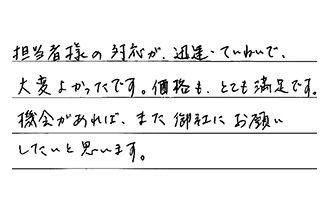 担当者様の対応が、迅速・ていねいで、
大変よかったです。価格も、とても満足です。
機会があれば、また御社にお願い
したいと思います。